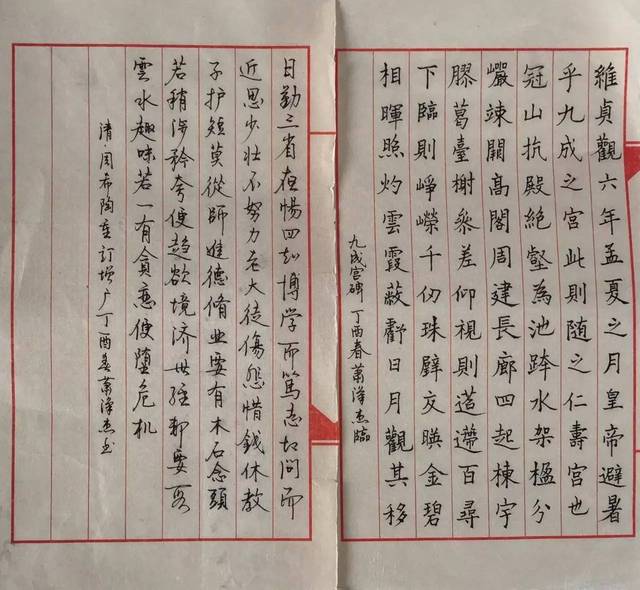 維貞觀六年孟夏之月皇帝避暑
乎九成之宮此則隨之仁壽宮也
冠山抗殿絕壑為池跨水架楹分
巖竦闕高閣周建長廊四起棟宇
膠葛臺榭參差仰視則迢遰百尋
下臨則崢嶸千仞珠璧交暎金碧
相暉照灼雲霞蔽虧日月觀其移
九成宮碑 丁酉春蕭澤杰臨
日勤三省夜惕四知博学而篤志切问而
近思少壮不努力老大徒傷悲惜錢休教
子护短莫從師進德脩业要有木石念頭
若稍涉矜夸便趋欲境济世经邦要段
雲水趣味若一有貪恋便堕危机
清·周希陶重訂增广丁酉春蕭澤杰书